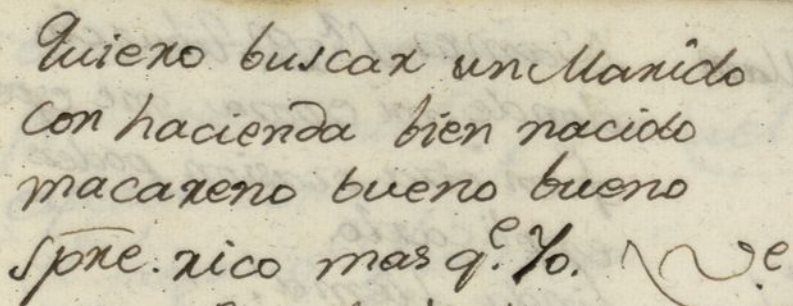 Quiero buscar un Marido
con hacienda bien nacido
macareno bueno bueno
spre. rico mas q.e Yo.